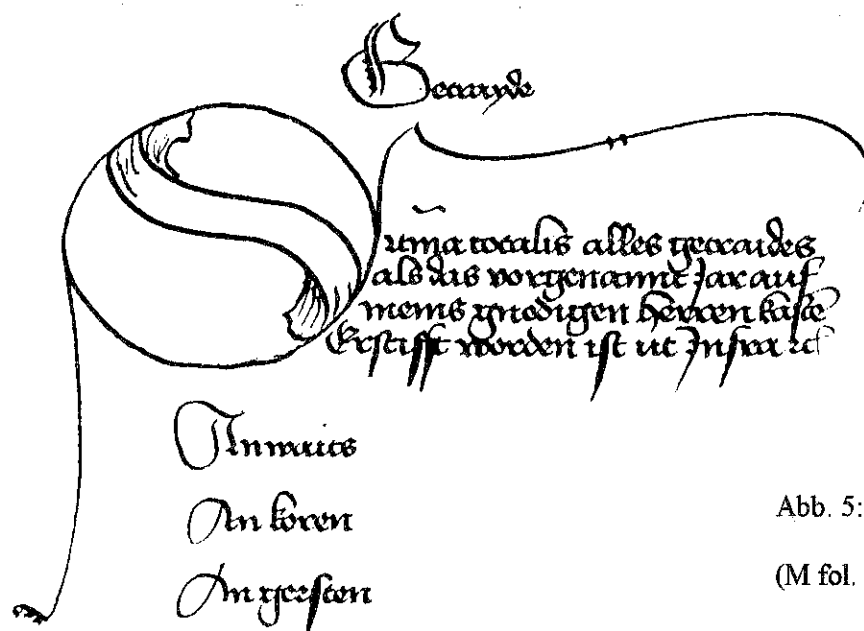 Getrayde
Sum̃a totalis alles getraides
als das vorgenannt Jar auf
meins gnedigen herren kastē
Erstifft worden ist ut Infra ⁊c
An waits
An koren
An gersten
Abb. 5:
(M fol.